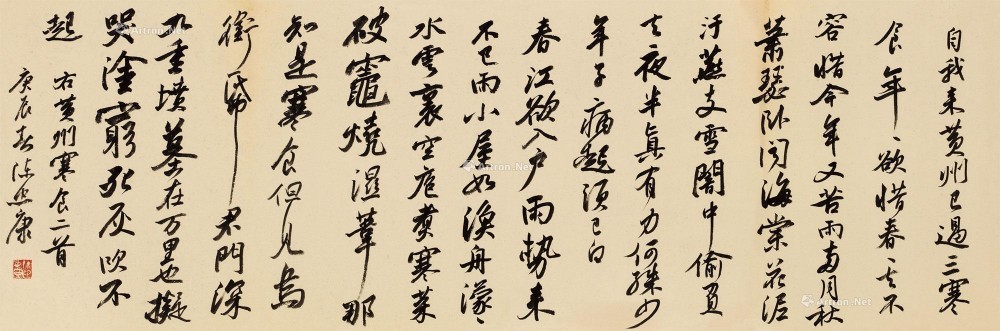 自我来黄州已過三寒
食年〻欲惜春〻去不
容惜今年又苦雨両月秋
蕭瑟卧聞海棠花泥
汙燕支雪闇中偷負
去夜半真有力何殊少
年子病起須已白
春江欲入户雨勢来
不已雨小屋如漁舟濛〻
水雲裏空庖煮寒菜
破竈燒濕葦那
知是寒食但見烏
銜帋君門深
九重墳墓在万里也擬
哭塗窮死灰吹不
起
右黄州寒食二首
庚辰春陳忠康
Artron.Net